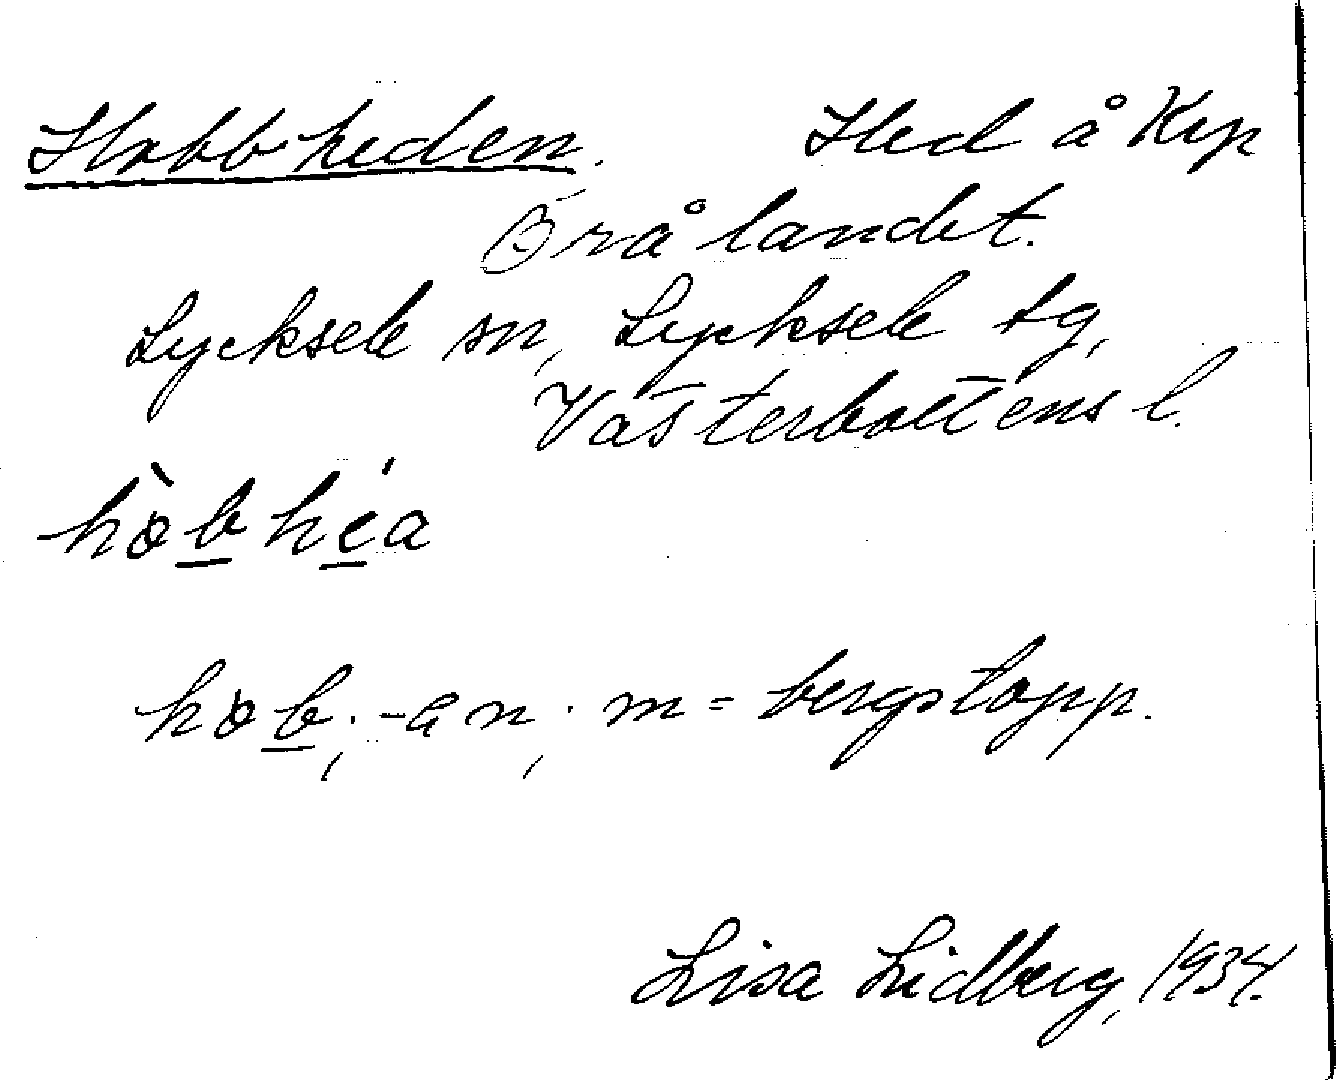 Hobbheden. Hed å Krp
Örålandet.
Lycksele sn, Lycksele tg,
Västerbottens l.
hòb héa
hob, -en, m = bergstopp.
Lisa Lidberg, 1934.